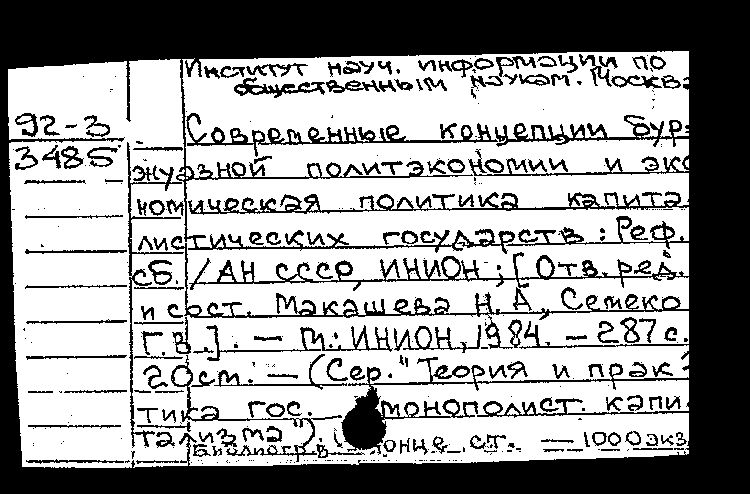 Институт науч. информации по
общественным наукам. Москва
92-3
Современные концепции бур-
3485
жуазной политэкономии и эко
номическая политика капита
листических государств : Реф.
сб. / АН СССР, ИНИОН ; [Отв. ред.
и сост. Макашева Н. А., Семеко
Г.В.]. — М.: ИНИОН, 1984. — 287 с.
20 см. — (Сер. "Теория и прак-
тика гос. монополист. капи
тализма").
Библиогр. в конце ст. — 1000 экз